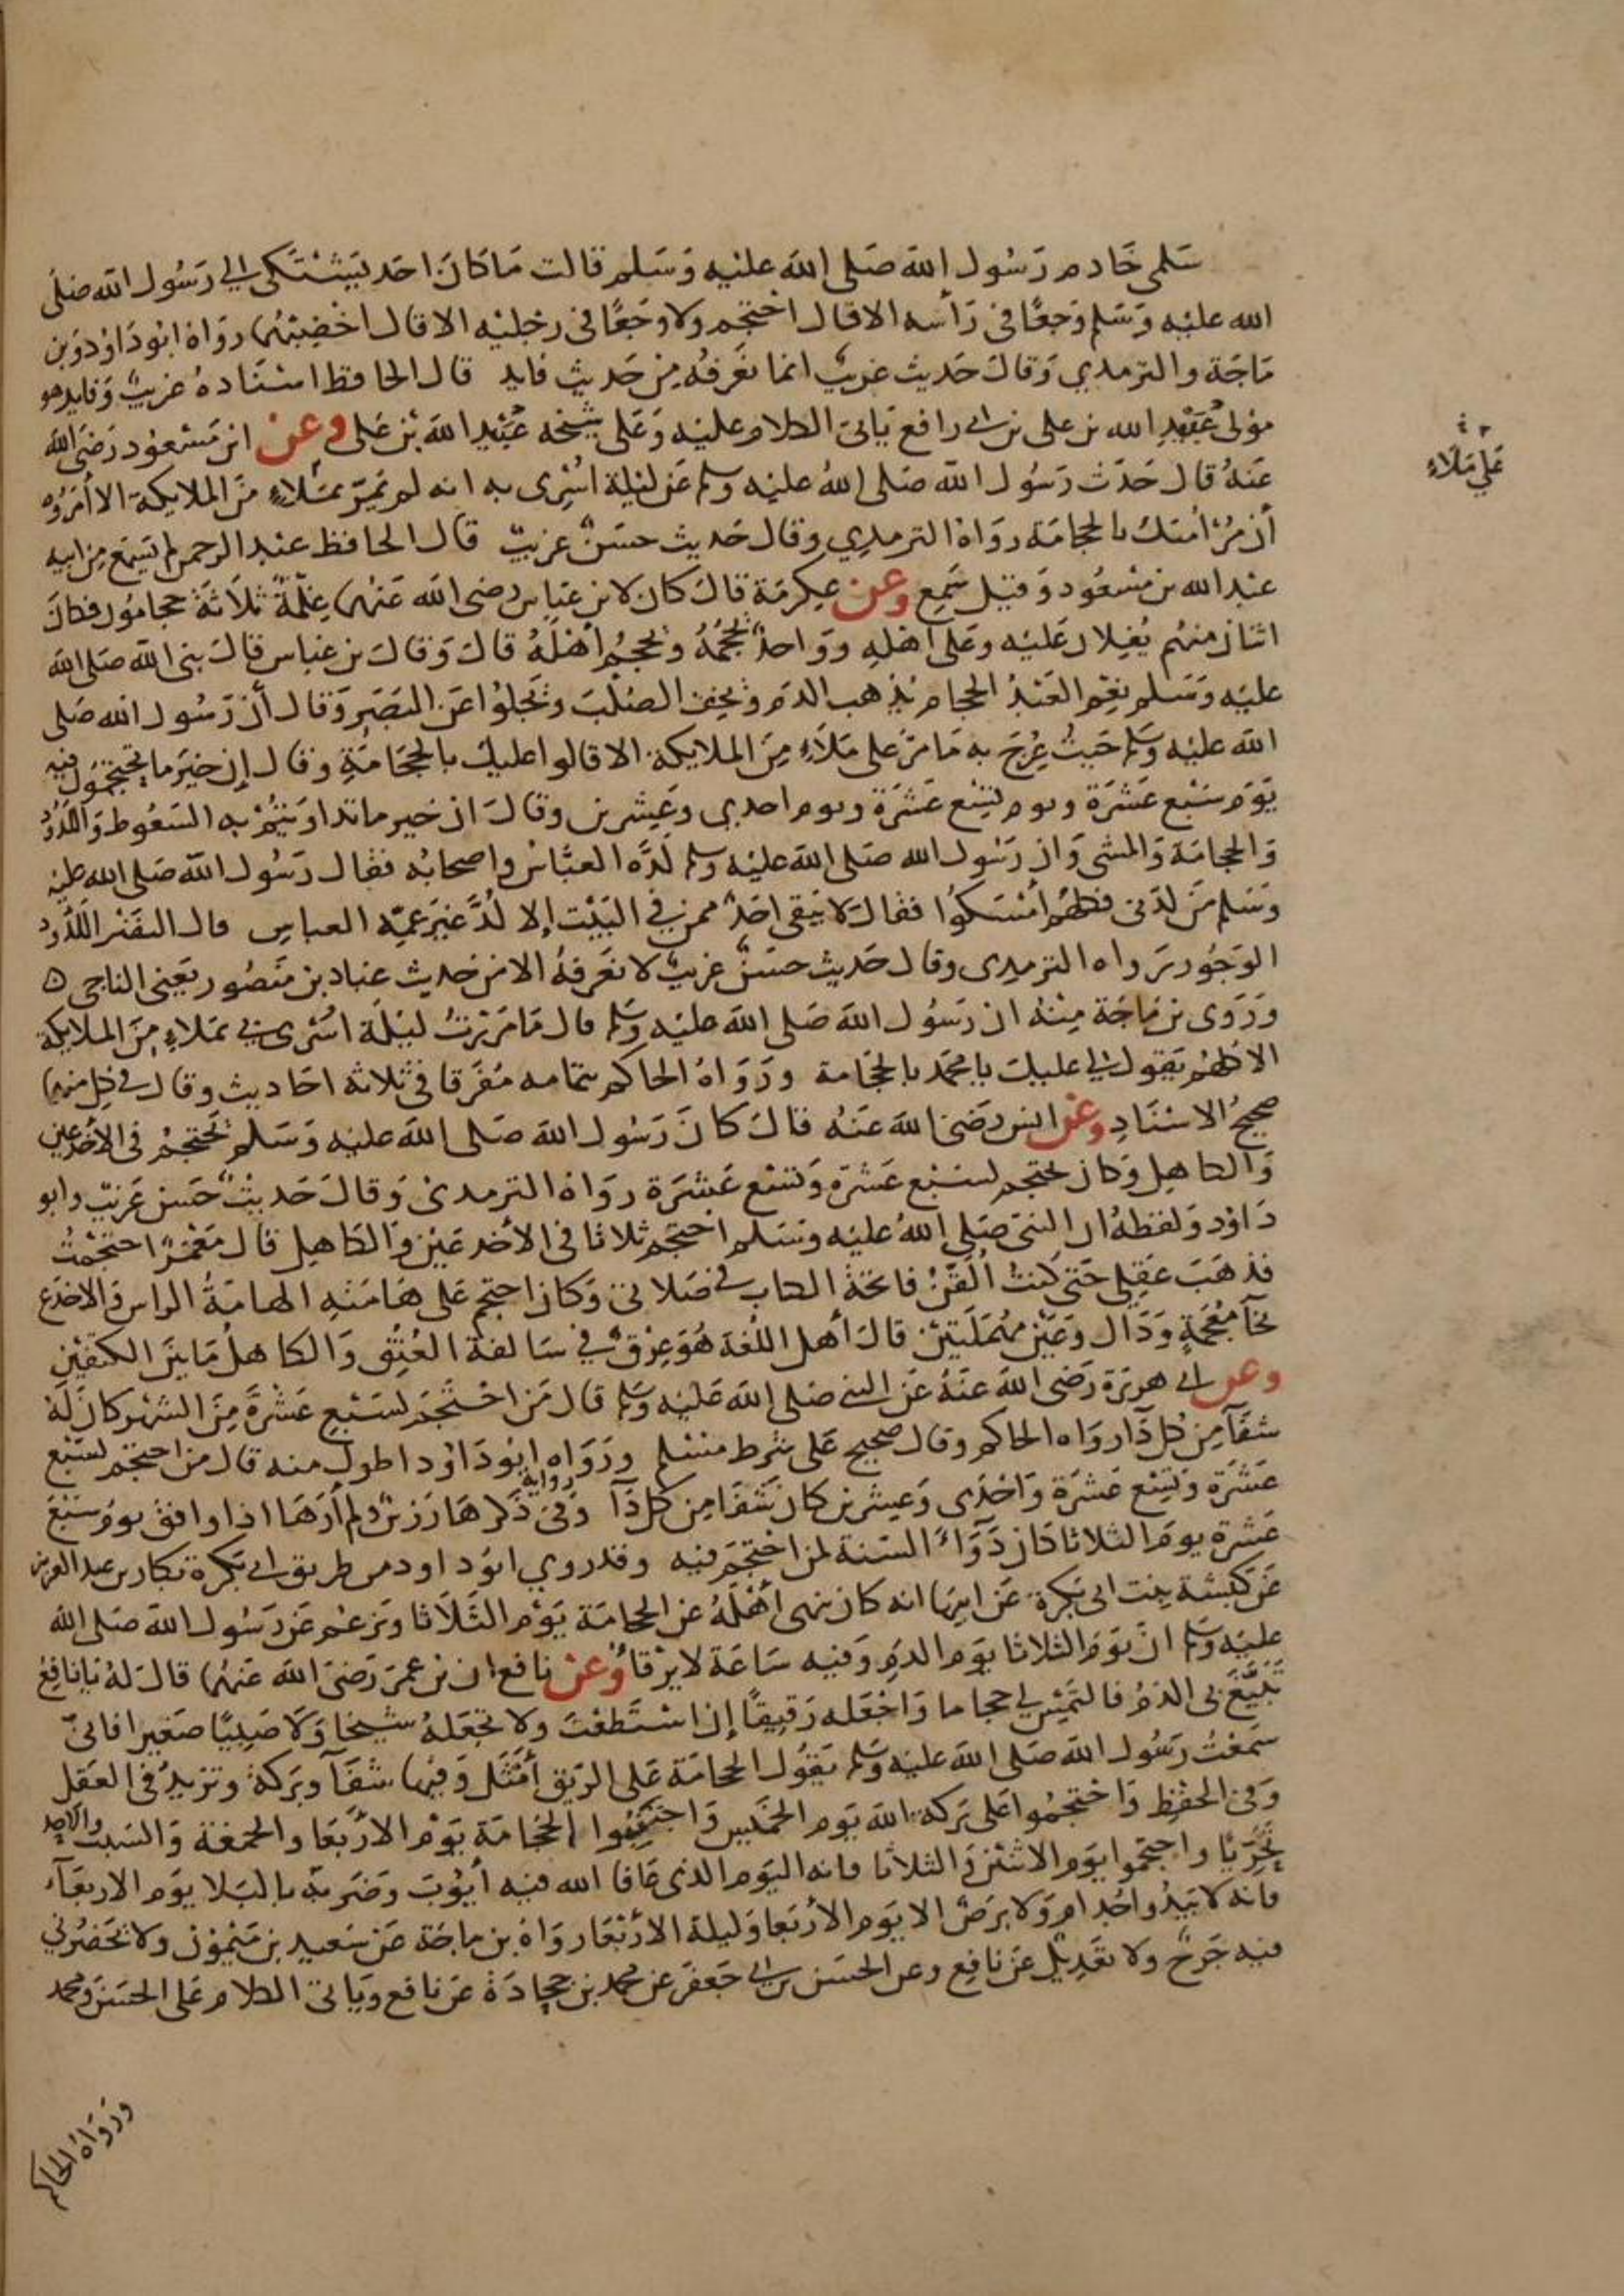 سَلمى خَادم رَسُول الله صَلى الله عليْه وَسَلم قالت مَا كَانَ احَد يَشْتَكى الي رَسُول الله صَلى
الله عليْه وَسَلم وَجعًا فى رَأسه الا قال احْتجم ولا وَجَعًا فى رجْليْه الا قال اخضِبْهُما روَاهُ ابُو دَاوُد وَبن
مَاجَة والترمدي وَقالَ حَديث غريبٌ انما نعْرفهُ مِنْ حَديث فايد قال الحافظ اسْنَادهُ غريبٌ وَفايد هو
موْلى عُبَيْدِ الله بن على بن ابى رافع يَاتى الكلام عليْه وَعَلى شيْخه عُبَيْد اللهَ بْن عَلى وعن ابن مَسْعوُد رَضىَ الله
عَنهُ قال حَدَّث رَسُول الله صَلى اللهُ عليْه وسلم عَن ليْلة اسْرِى به انه لم يَمُرّ بمَلاءٍ منَ الملايكة الا أمَرُوهُ
أنْ مُرْ امّتكَ بالحجامَة روَاهُ الترمدِي وقال حَديث حسَنٌ غريبٌ قال الحافظ عبْد الرحمن لم يَسْمَع مِن ابيه
عبْد الله بن مسْعُود وَقيْل سَمِع وعن عِكرمَة قالَ كان لابن عَباس رضى الله عَنهُما غِلمَةٌ ثلاَثةٌ حجامُون فكانَ
اثنان منهُم يُغِلان عَليْه وعَلى أهْلهِ ووَاحدٌ يحْجُمُهُ ويحْجُمُ أهْلَهُ قالَ وَقالَ بن عَباس قالَ نبى الله صَلى الله
عليْه وَسَلم نِعْم العَبْدُ الحجام يُذهب الدَم وَيُخِف الصُلبَ وَيجْلوُا عَن البَصَر وَقال أنّ رَسُول الله صَلى
الله عليْه وسَلم حَيثُ عُرجَ به مَا مَرّ على مَلاَءٍ مِنَ الملايكة الا قالوا عليك بالحِجَامَةِ وقال إنّ خيْرَ ما تحْتجمُون فيه
يَوْم سَبْع عَشْرَة ويوم تِسْع عَشْرَة ويوم احدي وعِشرين وقالَ ان خير ما تداوَيْتُمْ به السَعُوط وَاللدُودُ
وَالحجامَة وَالمشى وَان رَسُول الله صَلى الله عليْه وسلم لَدَّه العبَّاسُ واصحابُه فقال رَسُول الله صَلى الله عليْه
وسَلم مَن لدَنى فكلهُم أمْسَكوُا فقالَ لا يَبقى احَدٌ ممن فى البَيْت إلا لُدَّ غيْرَ عَمِّه العباسِ قال النضْر اللَدُودُ
الوَجُور رَواه الترمدى وقال حَديث حسَنٌ غريبٌ لا نعْرفهُ الا من حَديث عباد بن مَنصُور يَعنى الناجى ٥
وَرَوى بن مَاجَة مِنْهُ ان رَسُول الله صَلى الله عليْه وسَلم قال مَا مَرَرْتُ ليْلَة اسْرى بي بمَلاءٍ مِنَ الملايكة
الا كلهُم يَقول لي عليكَ يا محمَّد بالحجَامة وَرَوَاهُ الحاكم بتمامه مُفَرَّقا فى ثلاثة احَاديث وقال في كل منها
صحيحُ الاسْنَادِ وعن انس رَضىَ الله عَنهُ قالَ كانَ رَسُول الله صَلى الله عليْه وَسَلم يحْتجمْ فى الأخْدَعين
وَالكاهِل وَكان يحتجم لسَبْع عَشْرَة وَتسْع عَشْرَة روَاهُ الترمدى وَقالَ حَديثٌ حَسَن غَريبٌ وابو
دَاوُد وَلفظهُ ان النبى صَلى اللهُ عليْه وسَلم احتجم ثلاثا فى الأخدعَيْن وَالكاهِل قال مَعْمَرٌ احتجَمْتُ
فذهَبَ عَقلى حَتى كُنتُ الَقّنُ فاتحَة الكتاب في صَلاتى وَكان احتجم عَلى هَامَتِهِ الهامَةُ الراس وَالاخدَع
بخاَ مُعْجَمةٍ وَدَال وَعَيْن مُهمَلَتيْن قالَ أهل اللُّغة هُوَ عِرْقٌ فى سَالفة العُنُق وَالكاهلُ مَا بيْنَ الكتفَيْن
وعن ابى هريرَة رَضى الله عنهُ عَن النبى صَلى الله عَليْه وسَلم قال مَن احْتجَمَ لسَبْع عَشْرَةَ مِنَ الشهْر كانَ لَهُ
شفَآ مِن كُل دَآ روَاه الحاكم وقال صحيح عَلى شرط مسْلم ورَوَاه ابُو دَاوُد اطول منه قال من احتجم لسَبْع
عَشْرَة وَتِسْع عَشْرَة وَاحْدَى وَعِشْرين كان شفآ مِن كل دَآ وَفى رواية ذَكرهَا رَزينٌ ولم أرَهَا اذا وافق يوم سَبْعَ
عَشرة يومَ الثلاثا كان دَوَاءً السَنة لمن احْتجَمَ فيه وقد روي ابوُ داود من طريق ابى بَكْرة بكار بن عبد العزيز
عَن كبْشة بِنت ابى بَكرَة عَن ابيْها انه كان ينهى أهْلَهُ عن الحجامَة يَوْم الثَلاَثا وَيزعُم عَن رَسُول الله صَلى الله
عليْه وسَلم انّ يَوْم الثلاثا يوَم الدَمِ وَفيه سَاعَة لا يرْقأ وعن نافع ان بن عمَرَ رَضىَ الله عَنهُما قالَ لهُ يَا نافِعُ
تَبَيَّغَ بى الدَمُ فالتمِسْ لي حجاما وَاجْعَله رَفِيقًا إن اسْتَطعْتَ ولا تجعَلهُ شيْخا وَلا صَبِيًّا صَغيرا فانىّ
سَمعْتُ رَسُول الله صَلى الله عليْه وسَلم يَقوُل الحجامَة عَلى الريَق أمثَل وَفيْها شفَآ وبَركة وتزيدُ فى العَقل
وَفى الحفْظ وَاحْتجمُوا عَلى بَركة الله يَوم الخميْس وَاجْتَنِبُوا الحجَامَة يَوْم الأرْبعَا والجمعَة وَالسَبت والاحد
تحَرِّيًا واحتجموا يَوم الاثنيْن وَالثلاثا فانه اليَوم الذى عَافا الله فيه أيُوبَ وَضَرَبهُ بالبَلا يوَم الاربعَآء
فانه لا يَبْدُوا جُدام وَلا برَصٌ الا يَوْم الأرْبَعا وَليلة الأرْبَعَا روَاهُ بن ماجَة عَنْ سَعيد بن مَيْمُون ولا يحْضُرني
فيه جَرحٌ ولا تعْدِيلٌ عَن نافع وعن الحسَن بن ابى جَعفَر عن محمد بن جحَادَة عَن نافع وَيَاتى الكلام عَلى الحسَن ومحمد
وَرَوَاهُ الحاكم
عَلى مَلَاءٍ